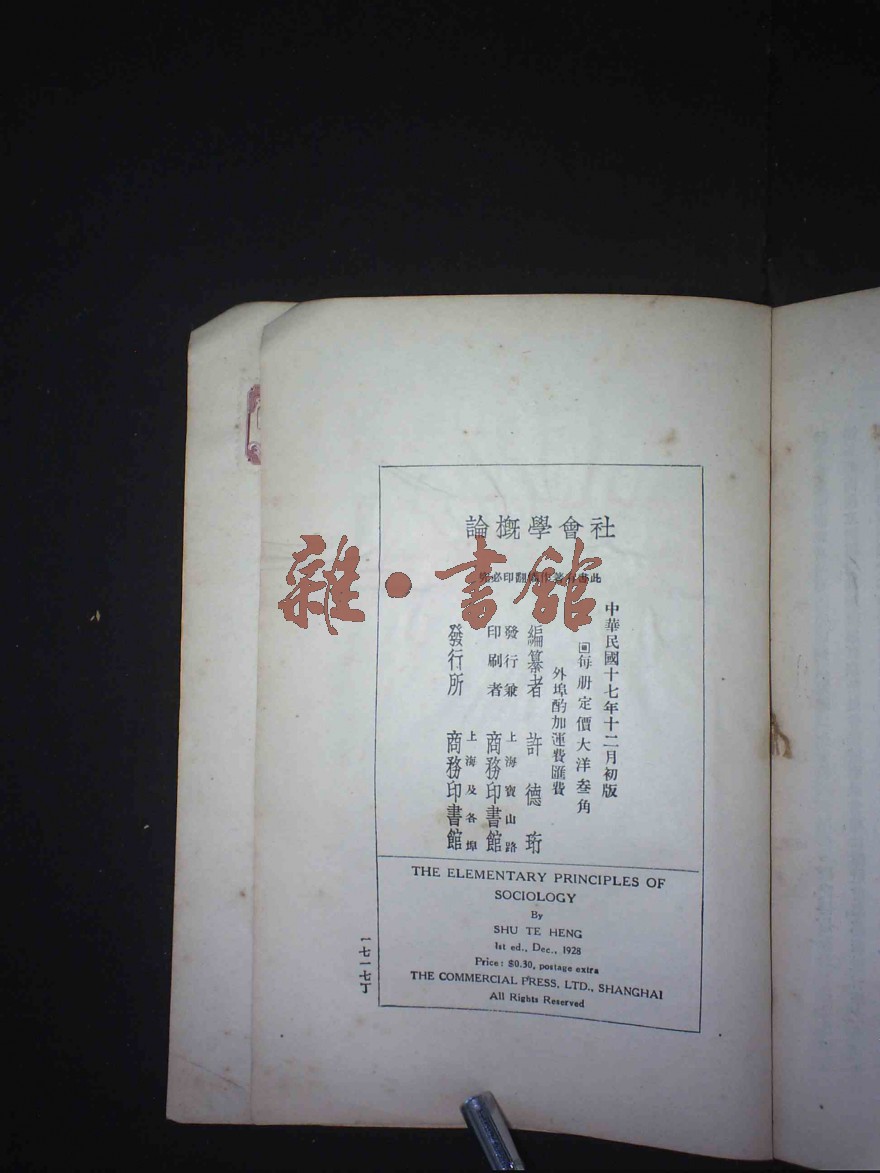 社會學概論
此書有著作權翻印必究
中華民國十七年十二月初版
回每册定價大洋叁角
外埠酌加運費匯費
編纂者 許德珩
發行兼 上海寶山路
印刷者 商務印書館
發行所 上海及各埠 商務印書館
THE ELEMENTARY PRINCIPLES OF
SOCIOLOGY
By
SHU TE HENG
1st ed., Dec., 1928
Price: $0.30, postage extra
THE COMMERCIAL PRESS, LTD., SHANGHAI
All Rights Reserved
一七一七丁
雜·書館